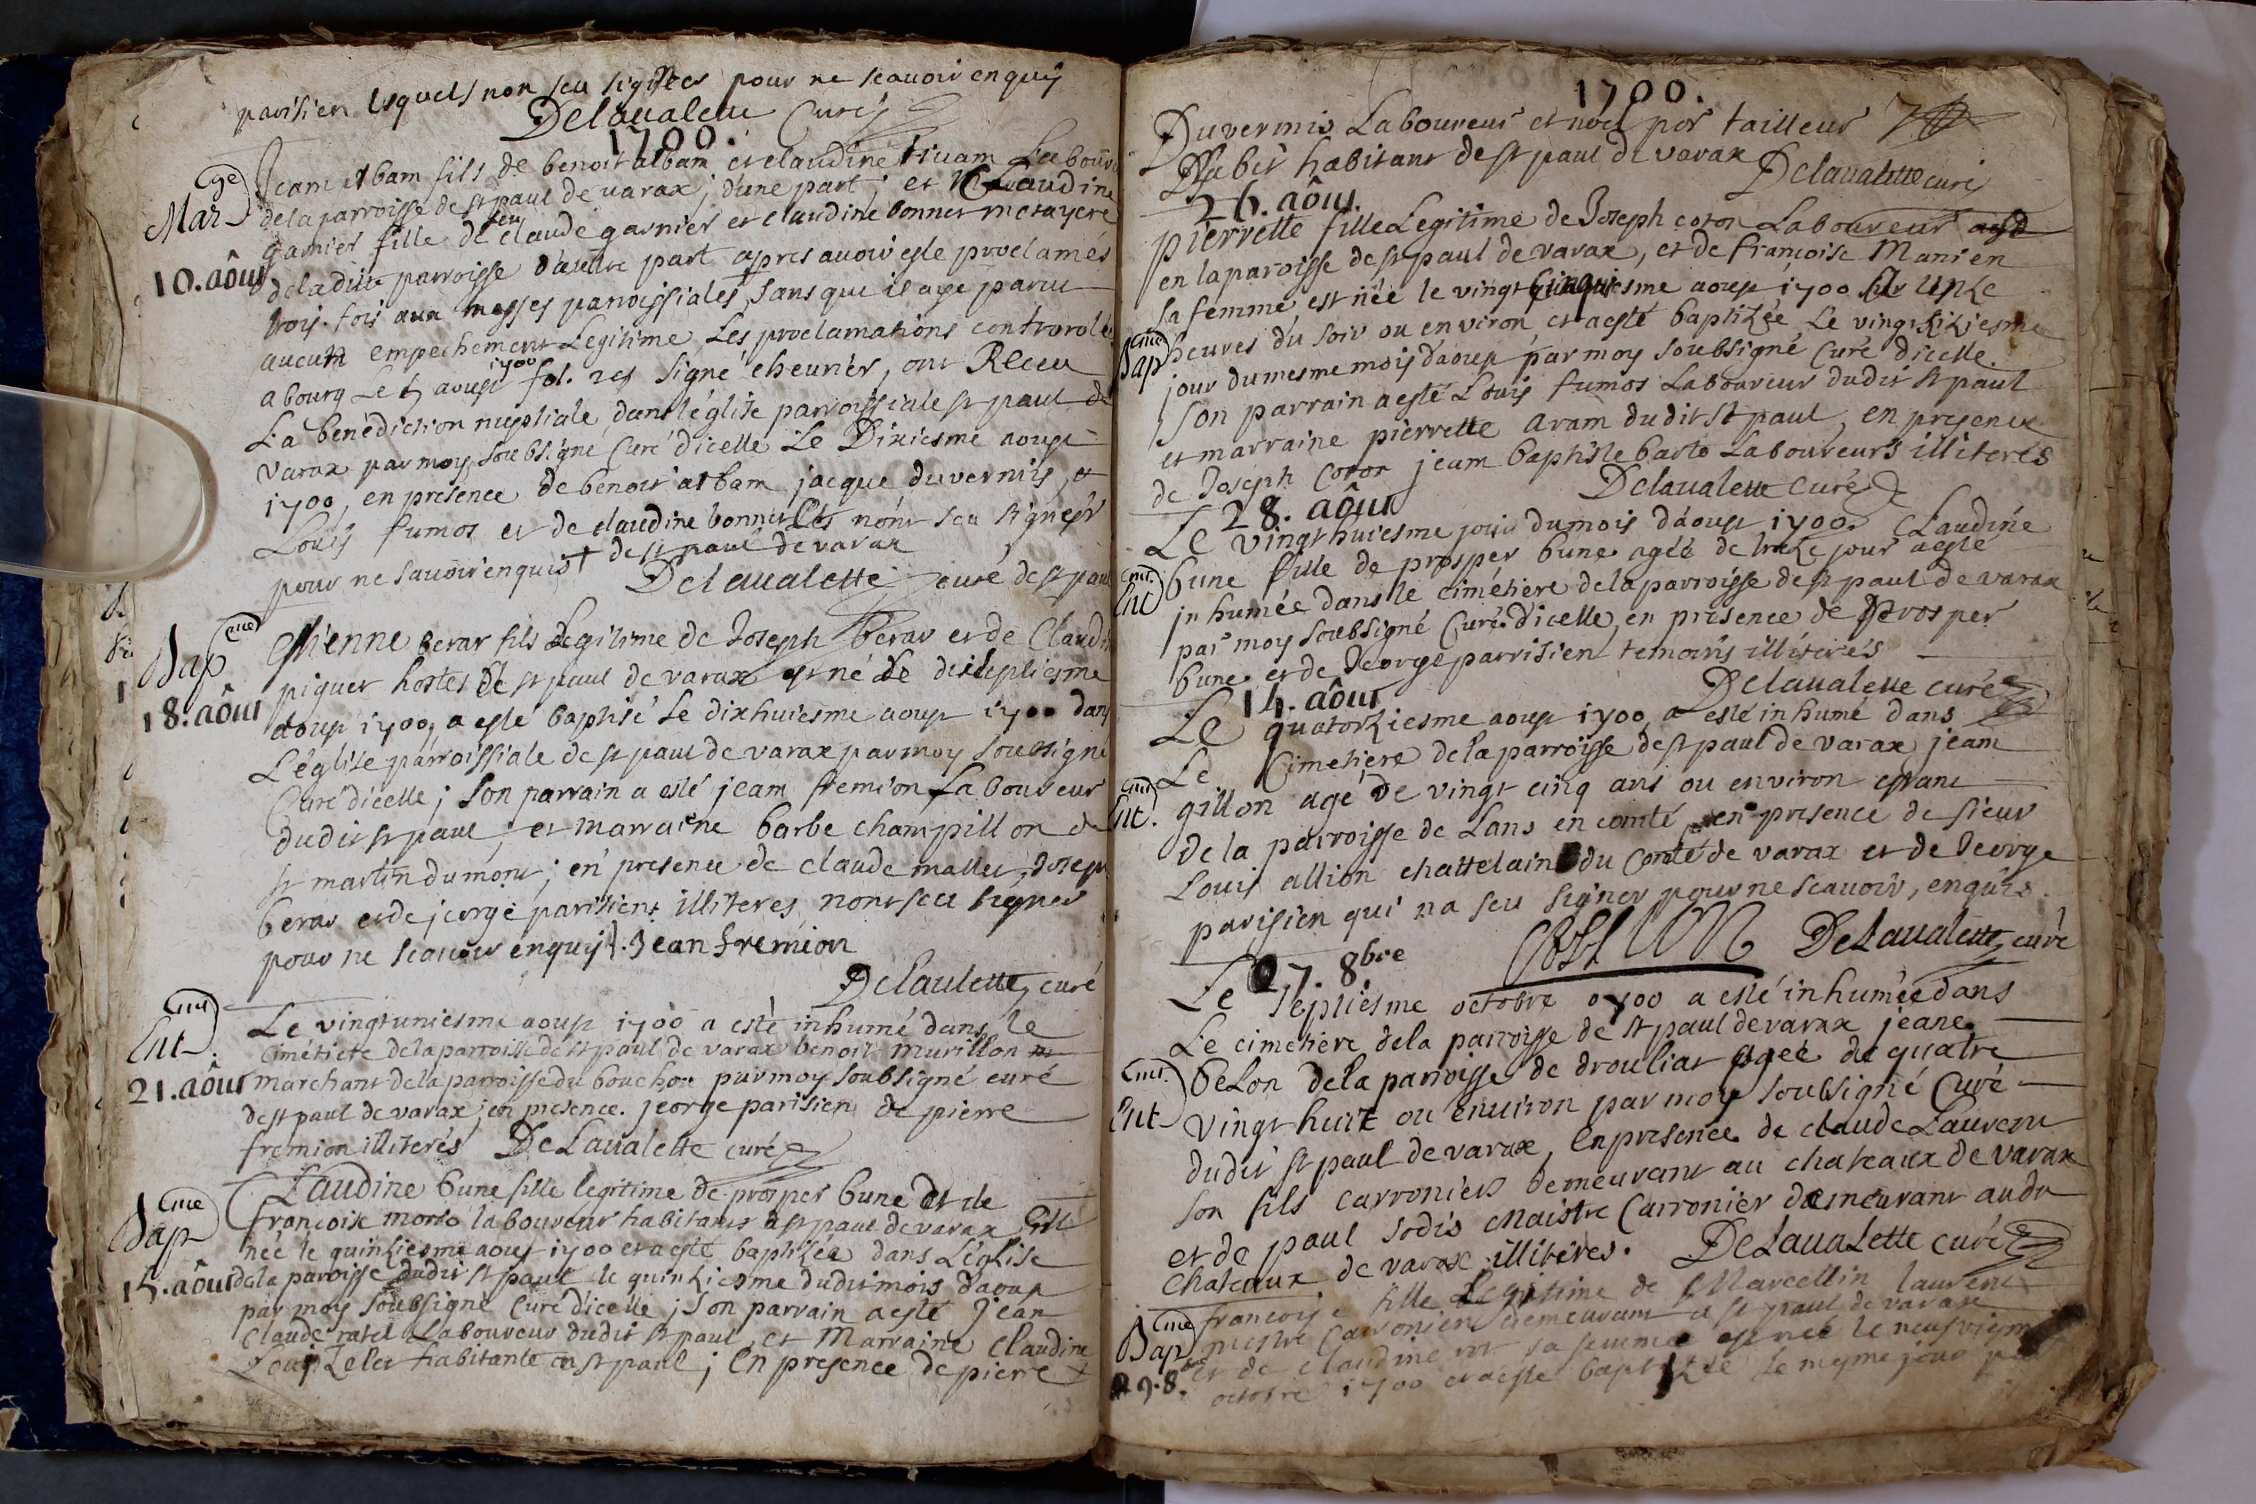 parisien lesquels non seu signer pour ne scauoir enquis
Delaualette Curé
1700.
Mar ge
10. aôut
Jeam albam fils de benoit albam et claudine Laboureur
de la parroisse de st paul de varax; d'une part; et Claudine
garnier fille de feu claude garnier et claudine bonnet metayere
de la dite parroisse d'autre part apres auoir esté proclamés
trois fois aux messes parroissiales, sans que il aye paru
aucun empechement Legitime Les proclamations controrolé
a bourg Le aoust 1700 fol. signé cheurier, ont Receu
La benédiction nuptiale dans l'église parroissiale st paul de
varax par moy soubsigné Curé dicelle Le Dixiesme aoust
1700, en presence de benoit albam jacque duvernis, et
Louis fumos et de claudine bonnet Les nont seu signer
pour ne sauoir enquis + de st paul de varax
Delaualette curé de st paul
Bap me
18. aôut
Etienne berar fils Legitime de Joseph berar et de Claudine
piquet hostes de st paul de varax est né le diseptiesme
aoust 1700, a esté baptisé Le dixhuiesme aoust 1700 dans
L'église parroissiale de st paul de varax par moy soubsigné
Curé dicelle; son parrain a esté jeam fremion Laboureur
dudit st paul, et marraine barbe champillon de
st martin du mont; en presence de claude mallet, Joseph
berar et de jeorge parisien illiteres nont seu signer
pour ne scauoir enquis. Jean fremion
Delaulette, curé
Ent.
21. aôut
Le vingtuniesme aoust 1700 a esté inhumé dans le
cimétiere de la parroisse de st paul de varax benoit murillon
marchant de la parroisse du bouchou par moy soubsigné curé
de st paul de varax; en presence. jeorge parisien de pierre
fremion illiterés DeLaualette curé
Bap me
15. aôut
Claudine bune fille legitime de prosper bune et de
francoise laboureur habitans a st paul de varax Est
née le quinziesme aoust 1700 et a esté baptizée dans L'église
de la paroisse dudit st paul le quinziesme dudit mois daoust
par moy soubsigné Curé dicelle; son parrain a esté Jean
Claude ratel Laboureur dudit st paul, et Marraine Claudine
habitante en st paul; En presence de pierre
1700.
Duvermis Laboureur et noel por tailleur
habit habitant de st paul de varax
Delaualette curé
26. aôut.
Bap me
pierrette fille Legitime de Joseph coton Laboureur
en la paroisse de st paul de varax, et de francoise Manien
sa femme, est née le vingt cinquiesme aoust 1700 sur unze
heures du soir ou environ et a esté baptizée Le vingt siziesme
jour du mesme mois daoust par moy soubsigné Curé dicelle.
son parrain a esté Louis fumos Laboureur dudit st paul
et marraine pierrette aram dudit st paul, en presence
de Joseph Coton jeam baptiste Laboureurs illiterés
Delaualette curé
28. aôut
Ent
Le vingt huiesme jour du mois d'aoust 1700. Claudine
bune fille de prosper bune agée de treze jour a esté
inhumée dans le cimétiere de la parroisse de st paul de varax
par moy soubsigné Curé dicelle, en presence de Prosper
bune et de Jeorge parrisien temoins illiterés
Delaualette curé
14. aôut
Ent.
Le quatorziesme aoust 1700, a esté inhumé dans
Le Cimetiere de la parroisse de st paul de varax jeam
gillon agé de vingt cinq ans ou environ estant
de la parroisse de Lans en comté en presence de sieur
Louis allion chattelain du Comté de varax et de Jeorge
parisien qui na seu signer pour ne scauoir, enquis.
DeLaualette, curé
Le 7. 8bre
Ent
Le septiesme octobre 1700 a esté inhumée dans
Le cimetiere de la parroisse de st paul de varax jeane
belon de la parroisse de drouliat agée de quatre
Vingt huit ou environ par moy soubsigné Curé
dudit st paul de varax, En presence de claude Laurent
son fils carroniers demeurant au chateaux de varax
et de paul sodis Maistre Carronier demeurant audit
chateaux de varax illiteres. DeLauaLette curé
Bap me
9. 8bre
francoise fille Legitime de Marcellin laurent
mestre Carronier demeurant a st paul de varax
et de Claudine sa femme est née le neufviesme
octobre 1700 et a esté baptizée le mesme jour par